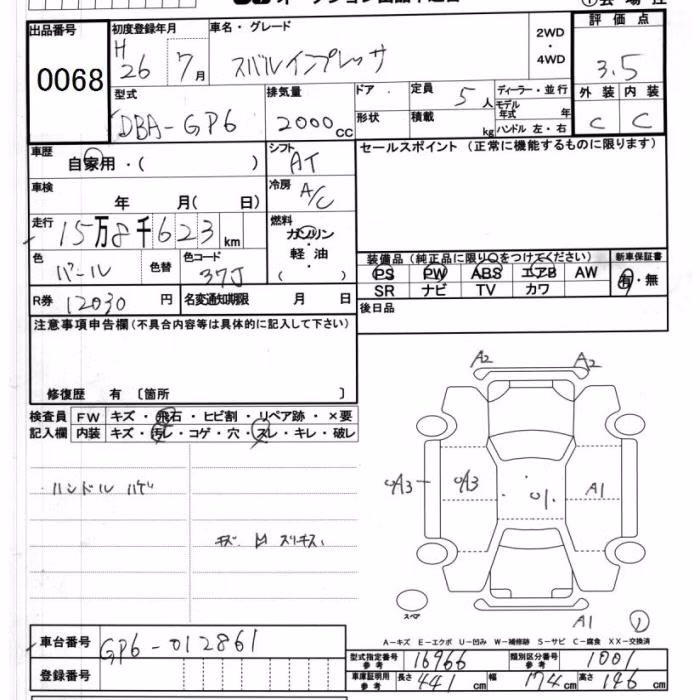 出品番号 初度登録年月 車名・グレード 2WD・4WD 評価点
0068 H26 7月 スバルインプレッサ 3.5
型式 排気量 ドア 定員 5人 ディーラー・並行 外装 内装
DBA-GP6 2000cc 形状 積載 kg モデル年式 年 C C
ハンドル 左・右
車歴 自家用・( ) シフト AT セールスポイント(正常に機能するものに限ります)
車検 年 月( 日) 冷房 A/C
走行 15万8千623km 燃料 ガソリン
軽・油
( )
色 パール 色替 色コード 37J 装備品(純正品に限り○をつけてください) 新車保証書
PS PW ABS エアB AW 有・無
R券 12030円 名変通知期限 月 日 SR ナビ TV カワ
注意事項申告欄(不具合内容等は具体的に記入して下さい) 後日品
修復歴 有〔箇所 〕
検査員 FW キズ・飛石・ヒビ割・リペア跡・×要
記入欄 内装 キズ・汚レ・コゲ・穴・スレ・キレ・破レ
A2 A2
ハンドル ハゲ
A3 A3 A1
スペア
A1 1
A-キズ E-エクボ U-凹み W-補修跡 S-サビ C-腐食 XX-交換済
車台番号 GP6-012861
型式指定番号 参考 16966 類別区分番号 参考 1001
登録番号 車庫証明用 参考 長さ 441cm 幅 174cm 高さ 146cm